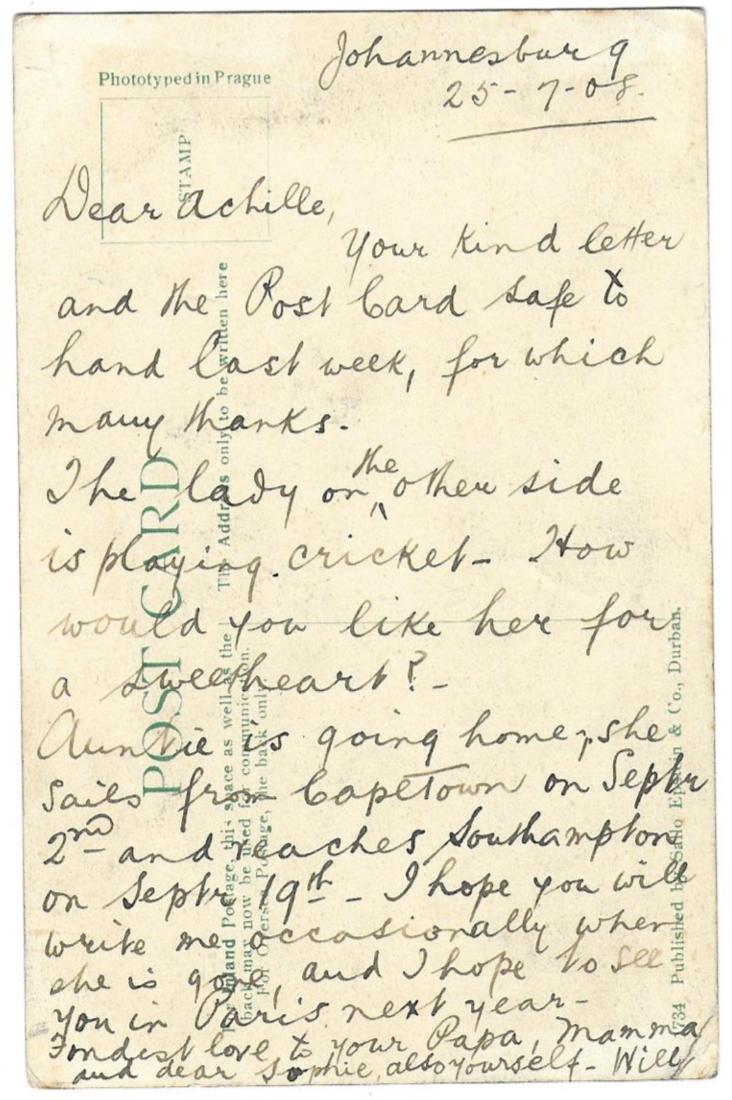 Johannesburg
25-7-08.
Dear Achille,
Your kind letter
and the Post Card safe to
hand last week, for which
many thanks.
The lady on the other side
is playing cricket - How
would you like her for
a sweetheart? -
Auntie is going home, she
sails from CapeTown on Septr
2nd and reaches Southampton
on Septr 19th - I hope you will
write me occasionally when
she is gone, and I hope to see
you in Paris next year -
Fondest love to your Papa, Mamma
and dear Sophie, also yourself - Willy
Phototyped in Prague
STAMP
POST CARD
The Address only to be written here
For Inland Postage, this space as well as the
back may now be used for communication.
For Oversea Postage, the back only.
734 Published by Sallo Epstein & Co., Durban.